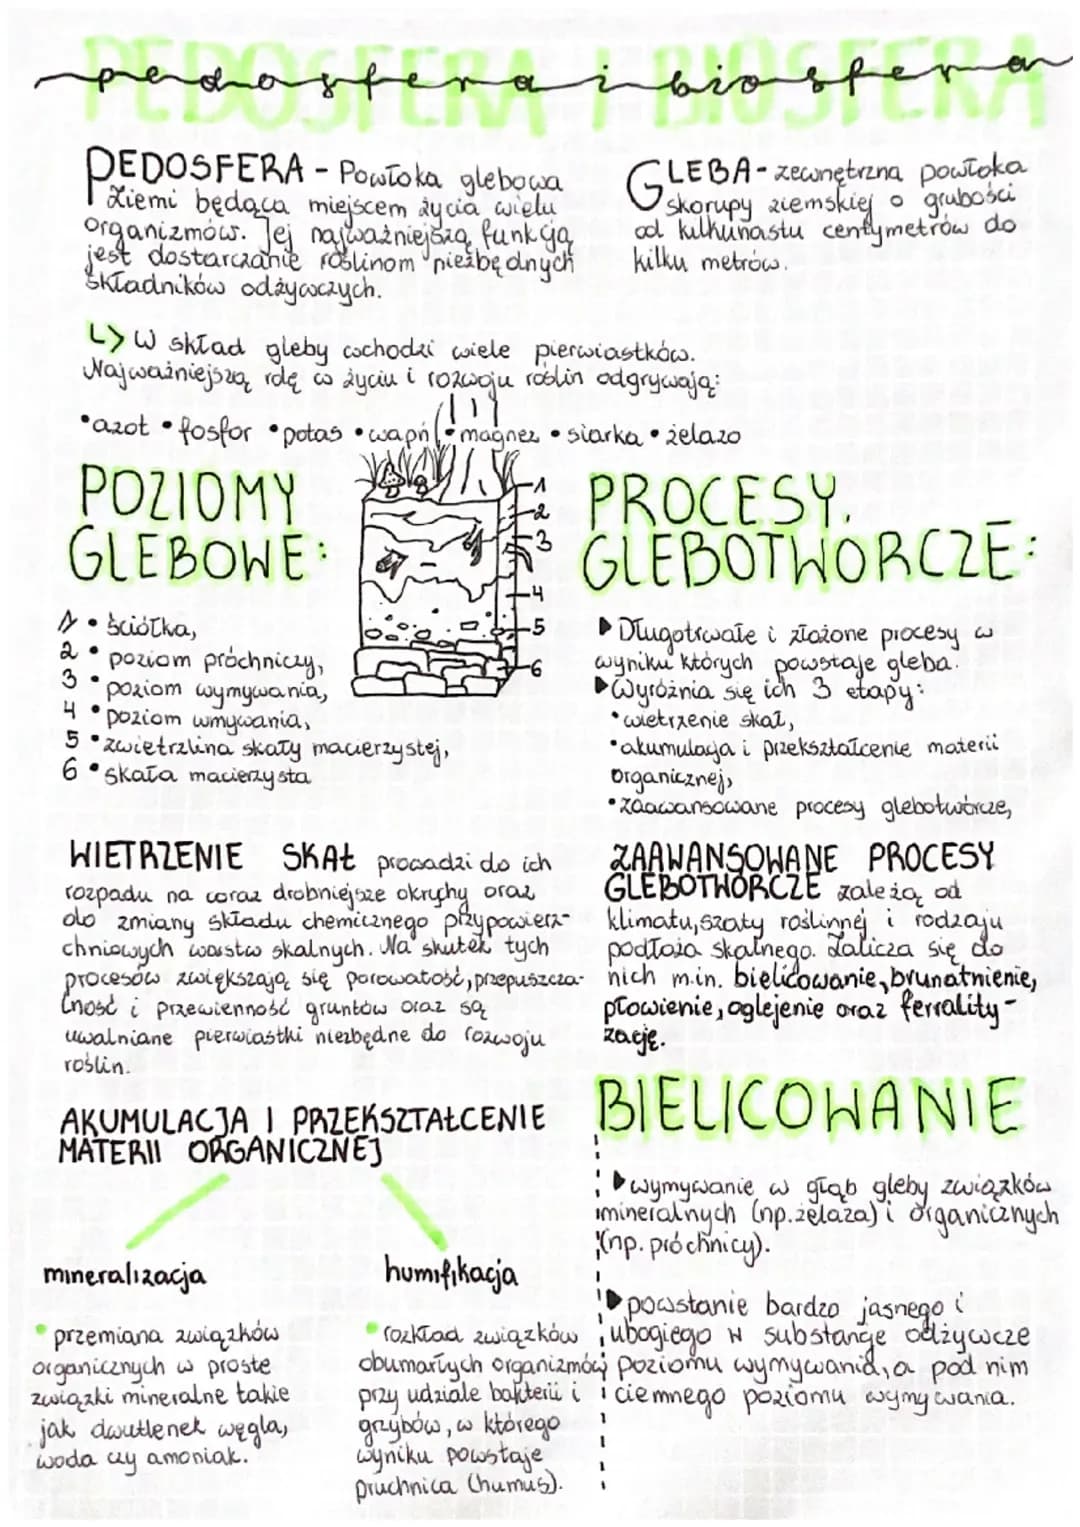 PEDOSFERA I BIOSFERA
pedosfera i biosfera
PEDOSFERA - Powłoka glebowa
Ziemi będąca miejscem życia wielu
organizmów. Jej najważniejszą funkcją
jest dostarczanie roślinom niezbędnych
składników odżywczych.
GLEBA - zewnętrzna powłoka
skorupy ziemskiej o grubości
od kilkunastu centymetrów do
kilku metrów.
↳ W skład gleby wchodzi wiele pierwiastków.
Najważniejszą rolę w życiu i rozwoju roślin odgrywają:
•azot •fosfor •potas •wapń •magnez •siarka •żelazo
POZIOMY
GLEBOWE:
1 • ściółka,
2 • poziom próchniczy,
3 • poziom wymywania,
4 • poziom wmywania,
5 • zwietrzlina skały macierzystej,
6 • skała macierzysta
1
2
3
4
5
6
PROCESY
GLEBOTWÓRCZE:
▶ Długotrwałe i złożone procesy w
wyniku których powstaje gleba.
▶ Wyróżnia się ich 3 etapy:
•wietrzenie skał,
•akumulacja i przekształcenie materii
organicznej,
•zaawansowane procesy glebotwórcze,
WIETRZENIE SKAŁ prowadzi do ich
rozpadu na coraz drobniejsze okruchy oraz
do zmiany składu chemicznego przypowierz-
chniowych warstw skalnych. Na skutek tych
procesów zwiększają się porowatość, przepuszcza-
lność i przewienność gruntów oraz są
uwalniane pierwiastki niezbędne do rozwoju
roślin.
ZAAWANSOWANE PROCESY
GLEBOTWÓRCZE zależą od
klimatu, szaty roślinnej i rodzaju
podłoża skalnego. Zalicza się do
nich m.in. bielicowanie, brunatnienie,
płowienie, oglejenie oraz ferrality-
zację.
AKUMULACJA I PRZEKSZTAŁCENIE
MATERII ORGANICZNEJ
mineralizacja
• przemiana związków
organicznych w proste
związki mineralne takie
jak dwutlenek węgla,
woda czy amoniak.
humifikacja
• rozkład związków
obumarłych organizmów
przy udziale bakterii i
grzybów, w którego
wyniku powstaje
pruchnica (humus).
BIELICOWANIE
▶ wymywanie w głąb gleby związków
mineralnych (np. żelaza) i organicznych
(np. próchnicy).
▶ powstanie bardzo jasnego i
ubogiego w substancje odżywcze
poziomu wymywania, a pod nim
ciemnego poziomu wymywania.